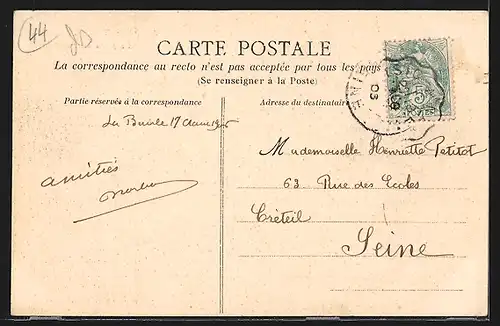 44
CARTE POSTALE
La correspondance au recto n'est pas acceptée par tous les pays
(Se renseigner à la Poste)
Partie réservée à la correspondance
Adresse du destinataire
La 17
amitiés
Mademoiselle Henriette Petitot
63 Rue des Ecoles
Créteil
Seine